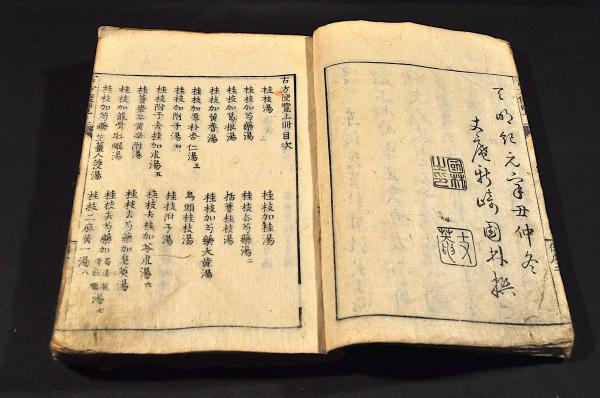 天明紀元辛丑仲冬
支庵新崎國林撰
國林之印
支菴
古方便覧上冊目次
桂枝湯 桂枝加桂湯
桂枝加芍藥湯 桂枝去芍藥湯 二
桂枝加葛根湯 栝蔞桂枝湯
桂枝加黄耆湯 桂枝加芍藥大黄湯
桂枝加厚朴杏仁湯 三 烏頭桂枝湯
桂枝加附子湯 四 桂枝附子湯
桂枝附子去桂加朮湯 五 桂枝去桂加苓朮湯 六
桂薑棗草黄辛附湯 桂枝去芍藥加皂莢湯
桂枝加龍骨牡蠣湯 桂枝去芍藥加蜀漆龍骨牡蠣湯 七
桂枝加芍藥生薑人參湯 桂枝二麻黄一湯 八